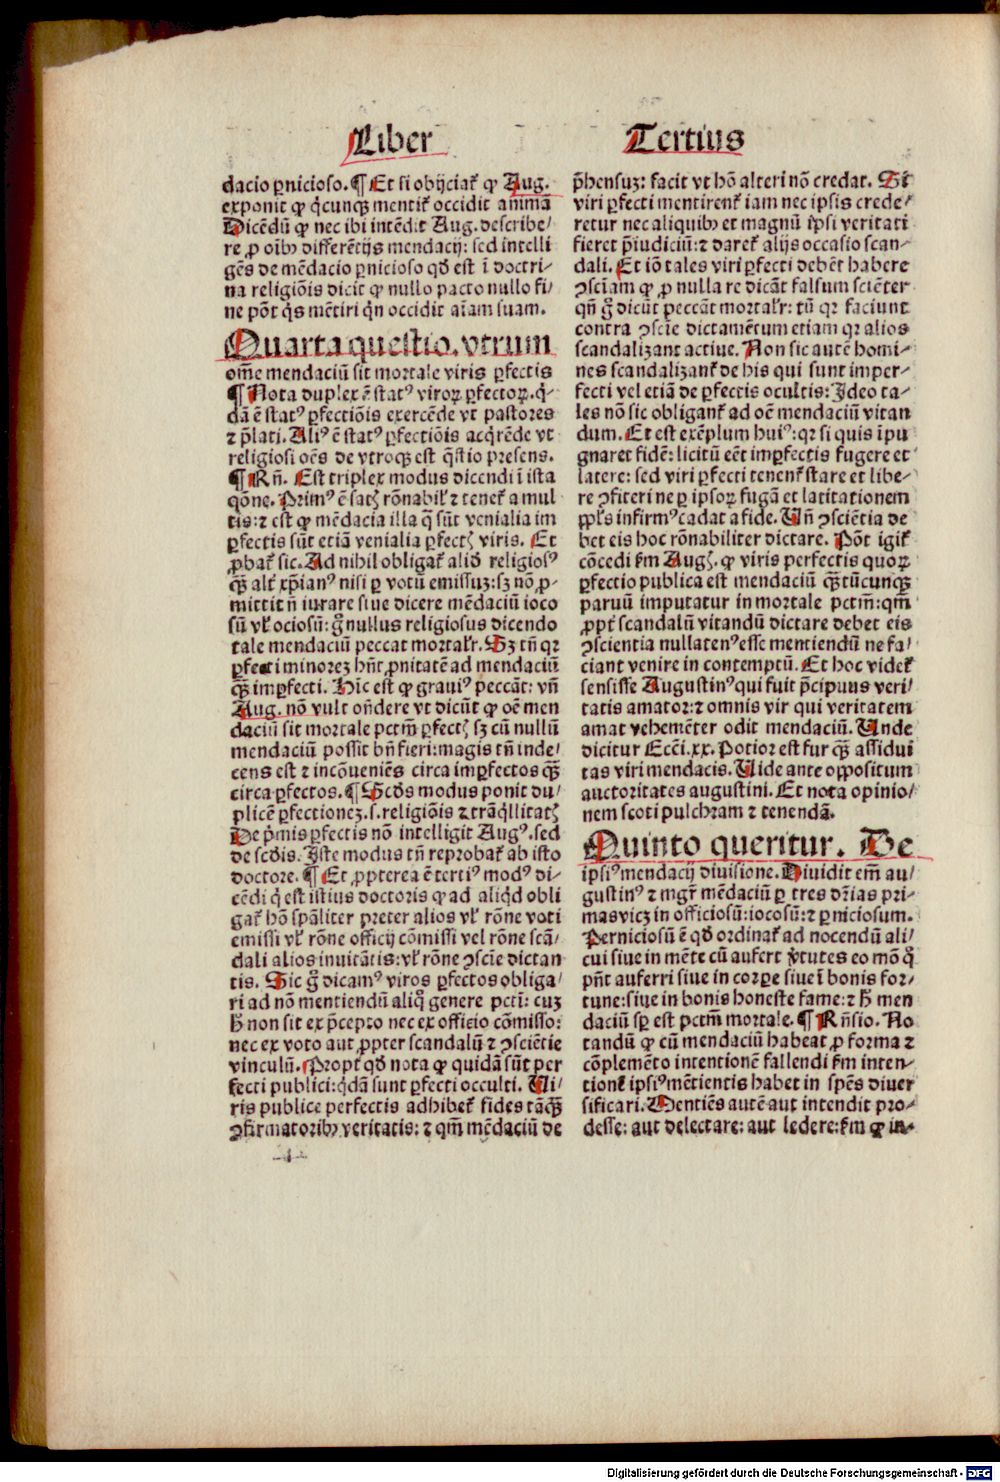 Liber
Tertius
dacio ꝑnicioso. ¶ Et si obijciat᷑ ꝙ Aug.
exponit ꝙ q̇cunqꝫ mentit᷑ occidit animā
Dicēdū ꝙ nec ibi intēdit Aug. describe⸗
re ꝓ oībꝰ differētijs mendacij: sed intelli
gēs de mēdacio ꝑnicioso qḋ est ī doctri⸗
na religiōis dicit ꝙ nullo pacto nullo fi⸗
ne pōt q̇s mētiri q̇n occidit aīam suam.
Quarta questio. vtrum
om̄e mendaciū sit mortale viris ꝑfectis
¶ Nota duplex ē statꝰ viroꝝ ꝑfectoꝝ. q̇⸗
dā ē statꝰ ꝑfectiōis exercēde vt pastores
⁊ p̄lati. Aliꝰ ē statꝰ ꝑfectiōis acq̇rēde vt
religiosi oēs de vtroqꝫ est q̄stio presens.
¶ Rn̄. Est triplex modus dicendi ī ista
qōne. Primꝰ ē satꝭ rōnabił ⁊ tenet᷑ a mul
tis: ⁊ est ꝙ mēdacia illa q̄ sūt venialia im
ꝑfectis sūt etiā venialia ꝑfectꝭ viris. Et
ꝓbat᷑ sic. Ad nihil obligat᷑ aliḋ religiosꝰ
qꝫ̄ alt᷑ xp̄ianꝰ nisi ꝑ votū emissuꝫ: sꝫ nō ꝓ⸗
mittit n̄ iurare siue dicere mēdaciū ioco
sū vł ociosū: g̊ nullus religiosus dicendo
tale mendaciū peccat mortalr̄. Sꝫ tn̄ qꝛ
ꝑfecti minoreꝫ hn̄t ꝓnitatē ad mendaciū
qꝫ̄ imꝑfecti. Hic est ꝙ grauiꝰ peccāt: vn̄
Aug. nō vult on̄dere vt dicūt ꝙ oē men
daciū sit mortale pctm̄ ꝑfectꝭ sꝫ cū nullū
mendaciū possit bn̄ fieri: magis tn̄ inde⸗
cens est ⁊ incōueniēs circa imꝑfectos qꝫ̄
circa ꝑfectos. ¶ Scḋs modus ponit du⸗
plicē ꝑfectioneꝫ. s. religiōis ⁊ trāq̇llitatꝭ
De ṗmis ꝑfectis nō intelligit Augꝰ. sed
de scḋis. Iste modus tn̄ reprobat᷑ ab isto
doctore. ¶ Et ꝓpterea ē tertiꝰ modꝰ di⸗
cēdi q̇ est istius doctoris ꝙ ad aliq̇d obli
gat᷑ hō spāliter preter alios vł rōne voti
emissi vł rōne officij cōmissi vel rōne scā⸗
dali alios inuitātis: vł rōne ꝯscīe dictan
tis. Sic g̊ dicamꝰ viros ꝑfectos obliga⸗
ri ad nō mentiendū aliq̊ genere pctī: cuꝫ
ħ non sit ex p̄cepto nec ex officio cōmisso:
nec ex voto aut ꝓpter scandalū ⁊ ꝯsciētie
vinculū. Propt᷑ qḋ nota ꝙ quidā sūt per
fecti publici: q̇dā sunt ꝑfecti occulti. Vi⸗
ris publice perfectis adhibet᷑ fides tāqꝫ̄
ꝯfirmatoribꝰ veritatis: ⁊ qm̄ mēdaciū de
p̄hensuꝫ: facit vt hō alteri nō credat. Si
viri ꝑfecti mentirent᷑ iam nec ipsis crede⸗
retur nec aliquibꝰ et magnū ip̄si veritati
fieret p̄iudiciū: ⁊ daret᷑ alijs occasio scan⸗
dali. Et iō tales viri ꝑfecti debēt habere
ꝯsciām ꝙ ꝓ nulla re dicāt falsum sciēter
qn̄ g̊ dicūt peccāt mortalr̄: tū qꝛ faciunt
contra ꝯscīe dictamētum etiam qꝛ alios
scandalizant actiue. Non sic autē homi⸗
nes scandalizant᷑ de his qui sunt imper⸗
fecti vel etiā de ꝑfectis ocultis: Ideo ta⸗
les nō sic obligant᷑ ad oē mendaciū vitan
dum. Et est exēplum huiꝰ: qꝛ si quis īpu
gnaret fidē: licitū eēt imꝑfectis fugere et
latere: sed viri ꝑfecti tenent᷑ stare et libe⸗
re ꝯfiteri ne ꝑ ipsoꝝ fugā et latitationem
ppl̄s infirmꝰ cadat a fide. Vn̄ ꝯsciētia de
bet eis hoc rōnabiliter dictare. Pōt igit᷑
cōcedi ẜm Augꝭ. ꝙ viris perfectis quoꝝ
ꝑfectio publica est mendaciū qꝫ̄tūcunqꝫ
paruū imputatur in mortale pctm̄: qm̄
ꝓpt᷑ scandalū vitandū dictare debet eis
ꝯscientia nullatenꝰ esse mentiendū ne fa⸗
ciant venire in contemptū. Et hoc videt᷑
sensisse Augustinꝰ qui fuit p̄cipuus veri⸗
tatis amator: ⁊ omnis vir qui veritatem
amat vehemēter odit mendaciū. Unde
dicitur Ecci̅. xx. Potior est fur qꝫ̄ assidui
tas viri mendacis. Uide ante oppositum
auctoritates augustini. Et nota opinio⸗
nem scoti pulchram ⁊ tenendā.
Quinto queritur. De
ipsiꝰ mendacij diuisione. Diuidit em̄ au⸗
gustinꝰ ⁊ mgr̄ mēdaciū ꝑ tres dr̄ias pri⸗
mas vicꝫ in officiosū: iocosū: ⁊ ꝑniciosum.
Perniciosū ē qḋ ordinat᷑ ad nocendū ali⸗
cui siue in mēte cū aufert v̇tutes eo mō q̊
pn̄t auferri siue in corꝑe siue ī bonis for⸗
tune: siue in bonis honeste fame: ⁊ ħ men
daciū sp̄ est pctm̄ mortale. ¶ Rn̄sio. No
tandū ꝙ cū mendaciū habeat ꝓ forma ⁊
cōplemēto intentionē fallendi ẜm inten⸗
tionē ipsiꝰ mētientis habet in spēs diuer
sificari. Mentiēs autē aut intendit pro⸗
desse: aut delectare: aut ledere: ẜm ꝙ in⸗
Digitalisierung gefördert durch die Deutsche Forschungsgemeinschaft - DFG